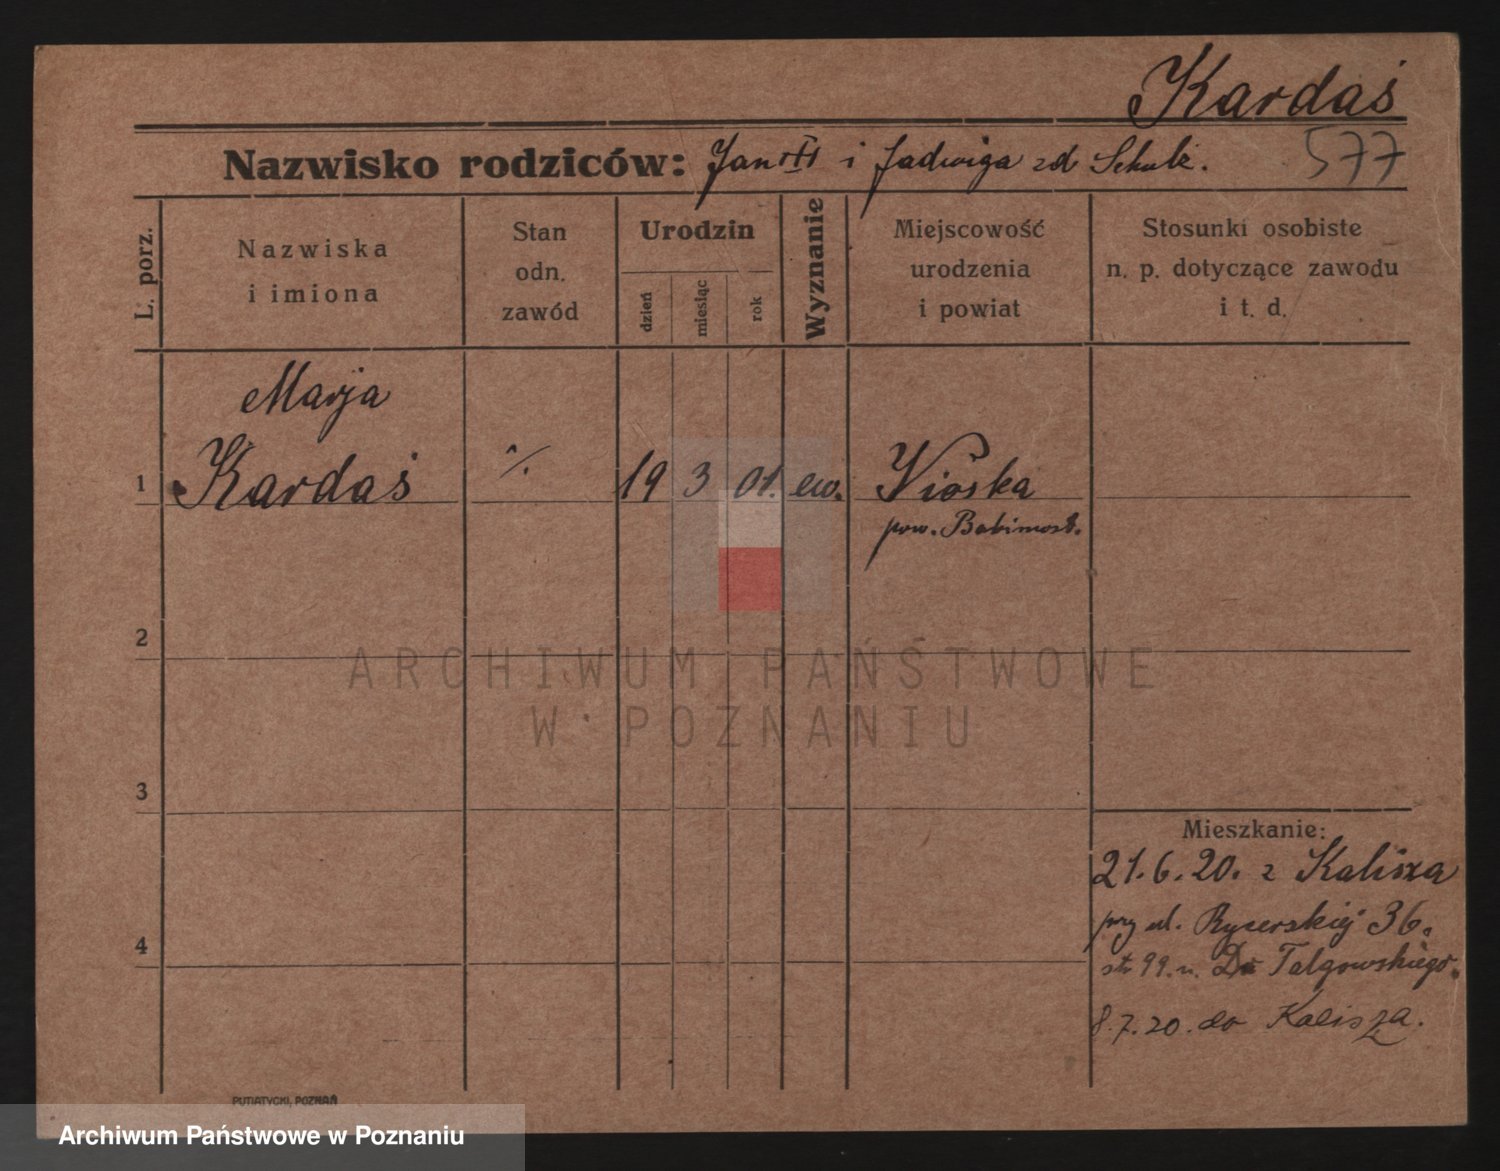 Kardaś
Nazwisko rodziców: Jan i Jadwiga zd Schulz.
577
L. porz.
Nazwiska
i imiona
Stan
odn.
zawód
Urodzin
dzień
miesiąc
rok
Wyznanie
Miejscowość
urodzenia
i powiat
Stosunki osobiste
n. p. dotyczące zawodu
i t. d.
Marja
1 Kardaś 19 3 01. ew. Wioska
pow. Babimost.
2
3
4
Mieszkanie:
21.6.20. z Kalisza
przy ul. Rycerskiej 36.
99. u. Talgowskiego.
8.7.20. do Kalisza.
PUTIATYCKI, POZNAŃ
ARCHIWUM PAŃSTWOWE
W POZNANIU
Archiwum Państwowe w Poznaniu